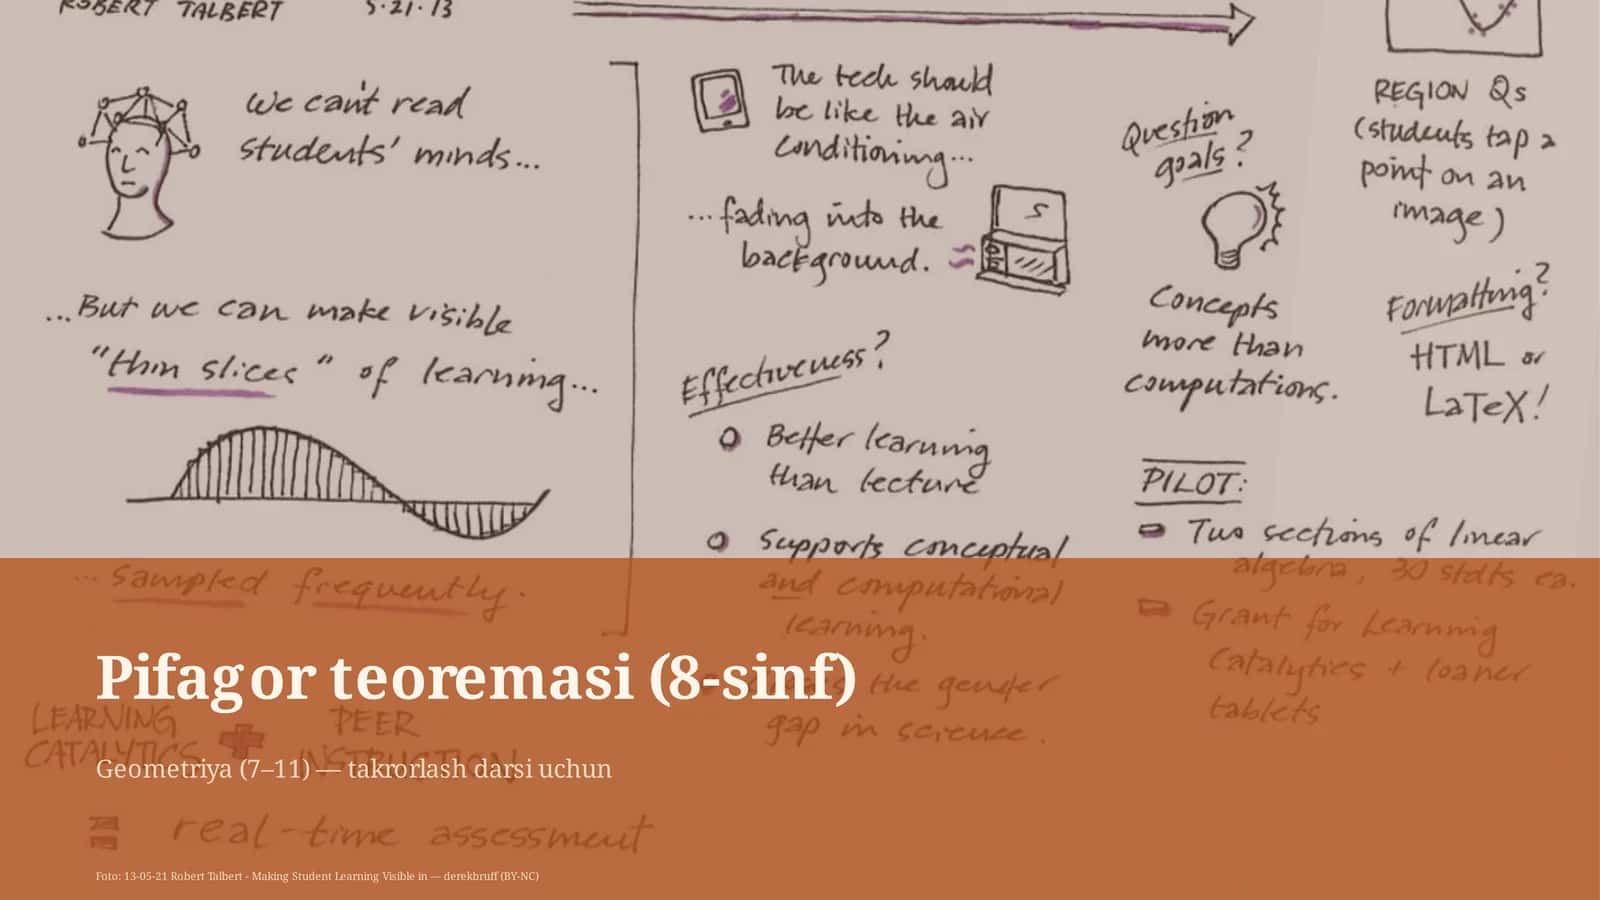 ROBERT TALBERT 5·21·13
We can't read
students' minds...
...But we can make visible
"thin slices" of learning...
... sampled frequently.
LEARNING
CATALYTICS
PEER
INSTRUCTION
real-time assessment
The tech should
be like the air
conditioning...
...fading into the
background.
Effectiveness?
Better learning
than lecture
Supports conceptual
and computational
learning.
the gender
gap in science.
Question
goals?
Concepts
more than
computations.
PILOT:
Two sections of linear
algebra, 30 stdts ea.
Grant for Learning
Catalytics + loaner
tablets
REGION Qs
(students tap a
point on an
image)
Formatting?
HTML or
LaTeX!
Pifagor teoremasi (8-sinf)
Geometriya (7–11) — takrorlash darsi uchun
Foto: 13-05-21 Robert Talbert - Making Student Learning Visible in — derekbruff (BY-NC)